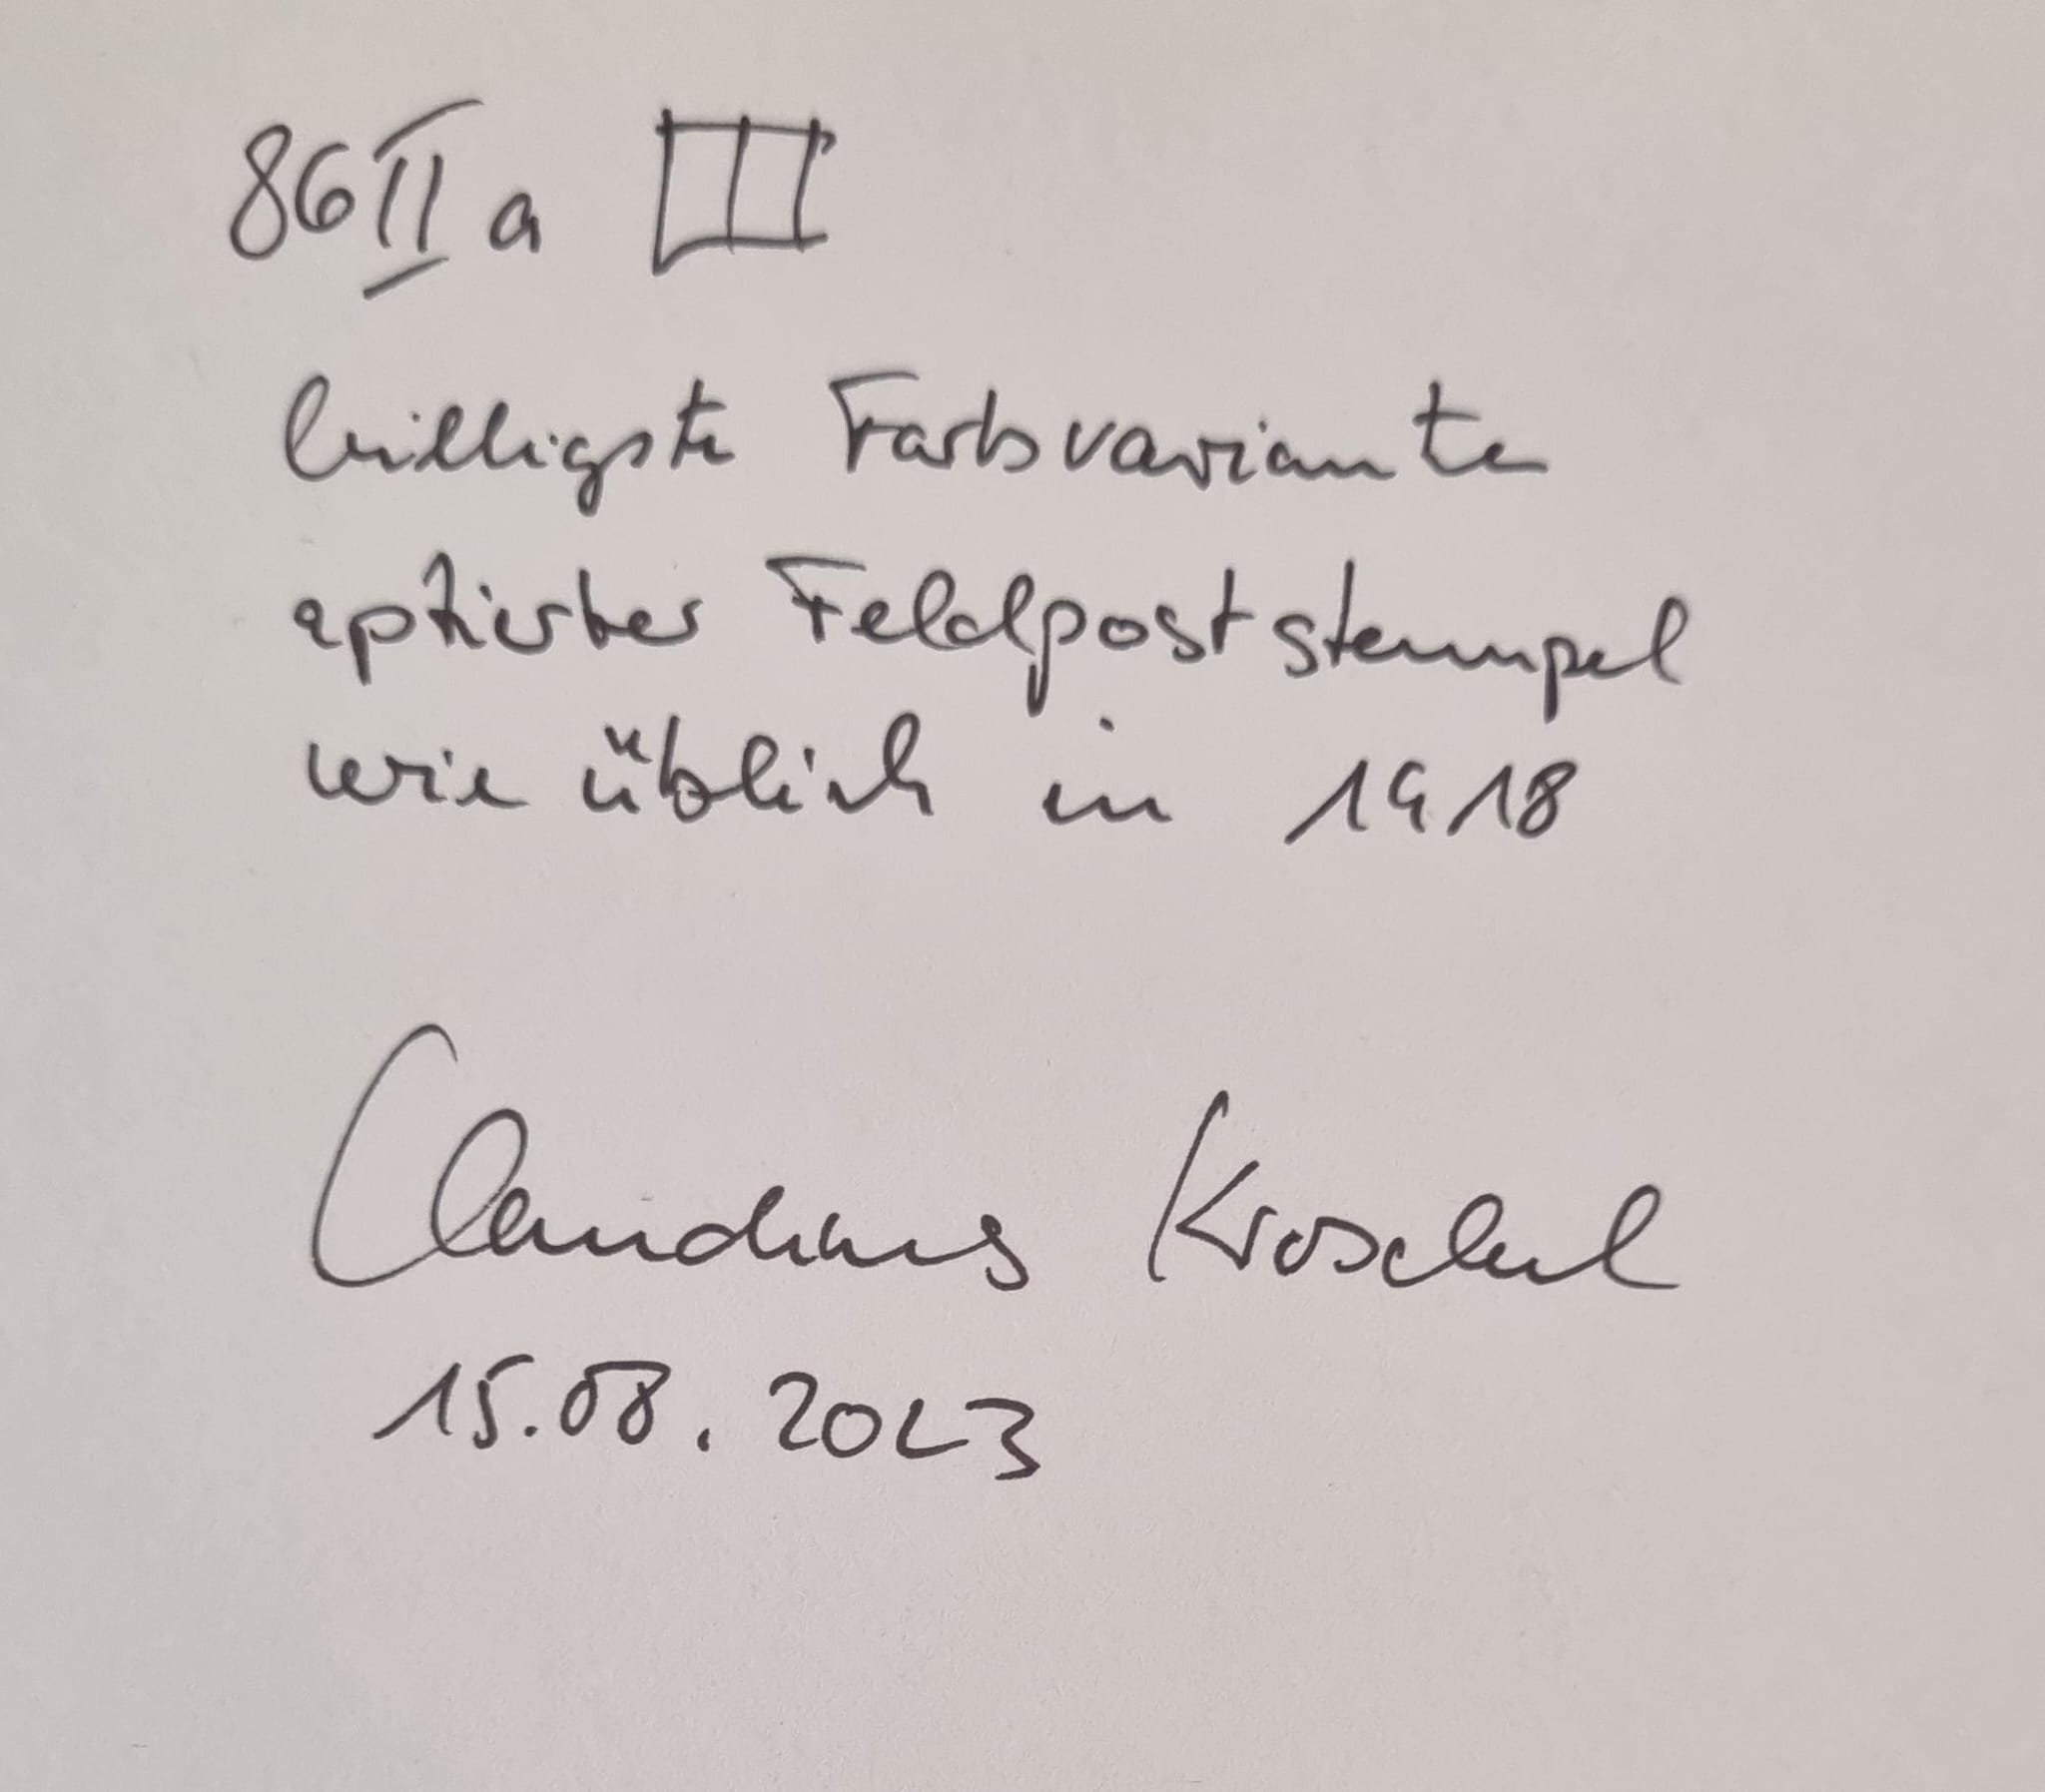 86 II a
billigste Farbvariante
aptierter Feldpoststempel
wie üblich in 1918
Claudius Kroschel
15.08.2023